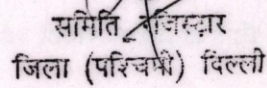 समिति रजिस्ट्रार
जिला (पश्चिमी) दिल्ली